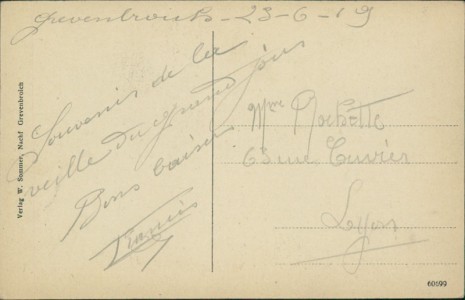 Grevenbroich - 23-6-19
Souvenir de la
veille du grand jour
Bons baisers
Francis
Mme Rochette
63 rue Cuvier
Lyon
Verlag W. Sommer, Nachf Grevenbroich
60599